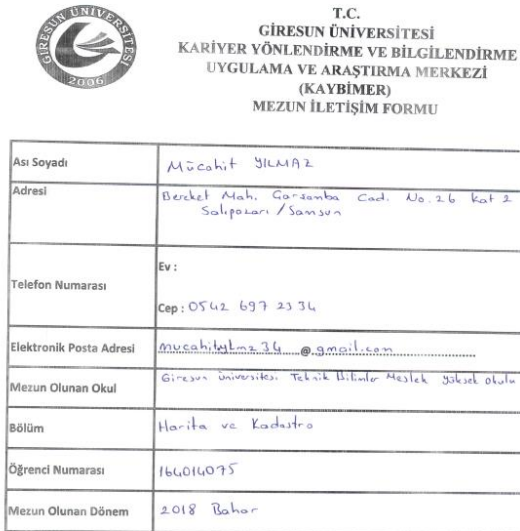 GİRESUN ÜNİVERSİTESİ
2006
T.C.
GİRESUN ÜNİVERSİTESİ
KARİYER YÖNLENDİRME VE BİLGİLENDİRME
UYGULAMA VE ARAŞTIRMA MERKEZİ
(KAYBİMER)
MEZUN İLETİŞİM FORMU
Ası Soyadı Mücahit YILMAZ
Adresi Bereket Mah. Çarşamba Cad. No.26 kat 2
Salıpazarı / Samsun
Telefon Numarası Ev :
Cep : 0542 697 2334
Elektronik Posta Adresi mucahitylmz34 @ gmail.com
Mezun Olunan Okul Giresun üniversitesi Teknik Bilimler Meslek yüksek okulu
Bölüm Harita ve Kadastro
Öğrenci Numarası 164014075
Mezun Olunan Dönem 2018 Bahar